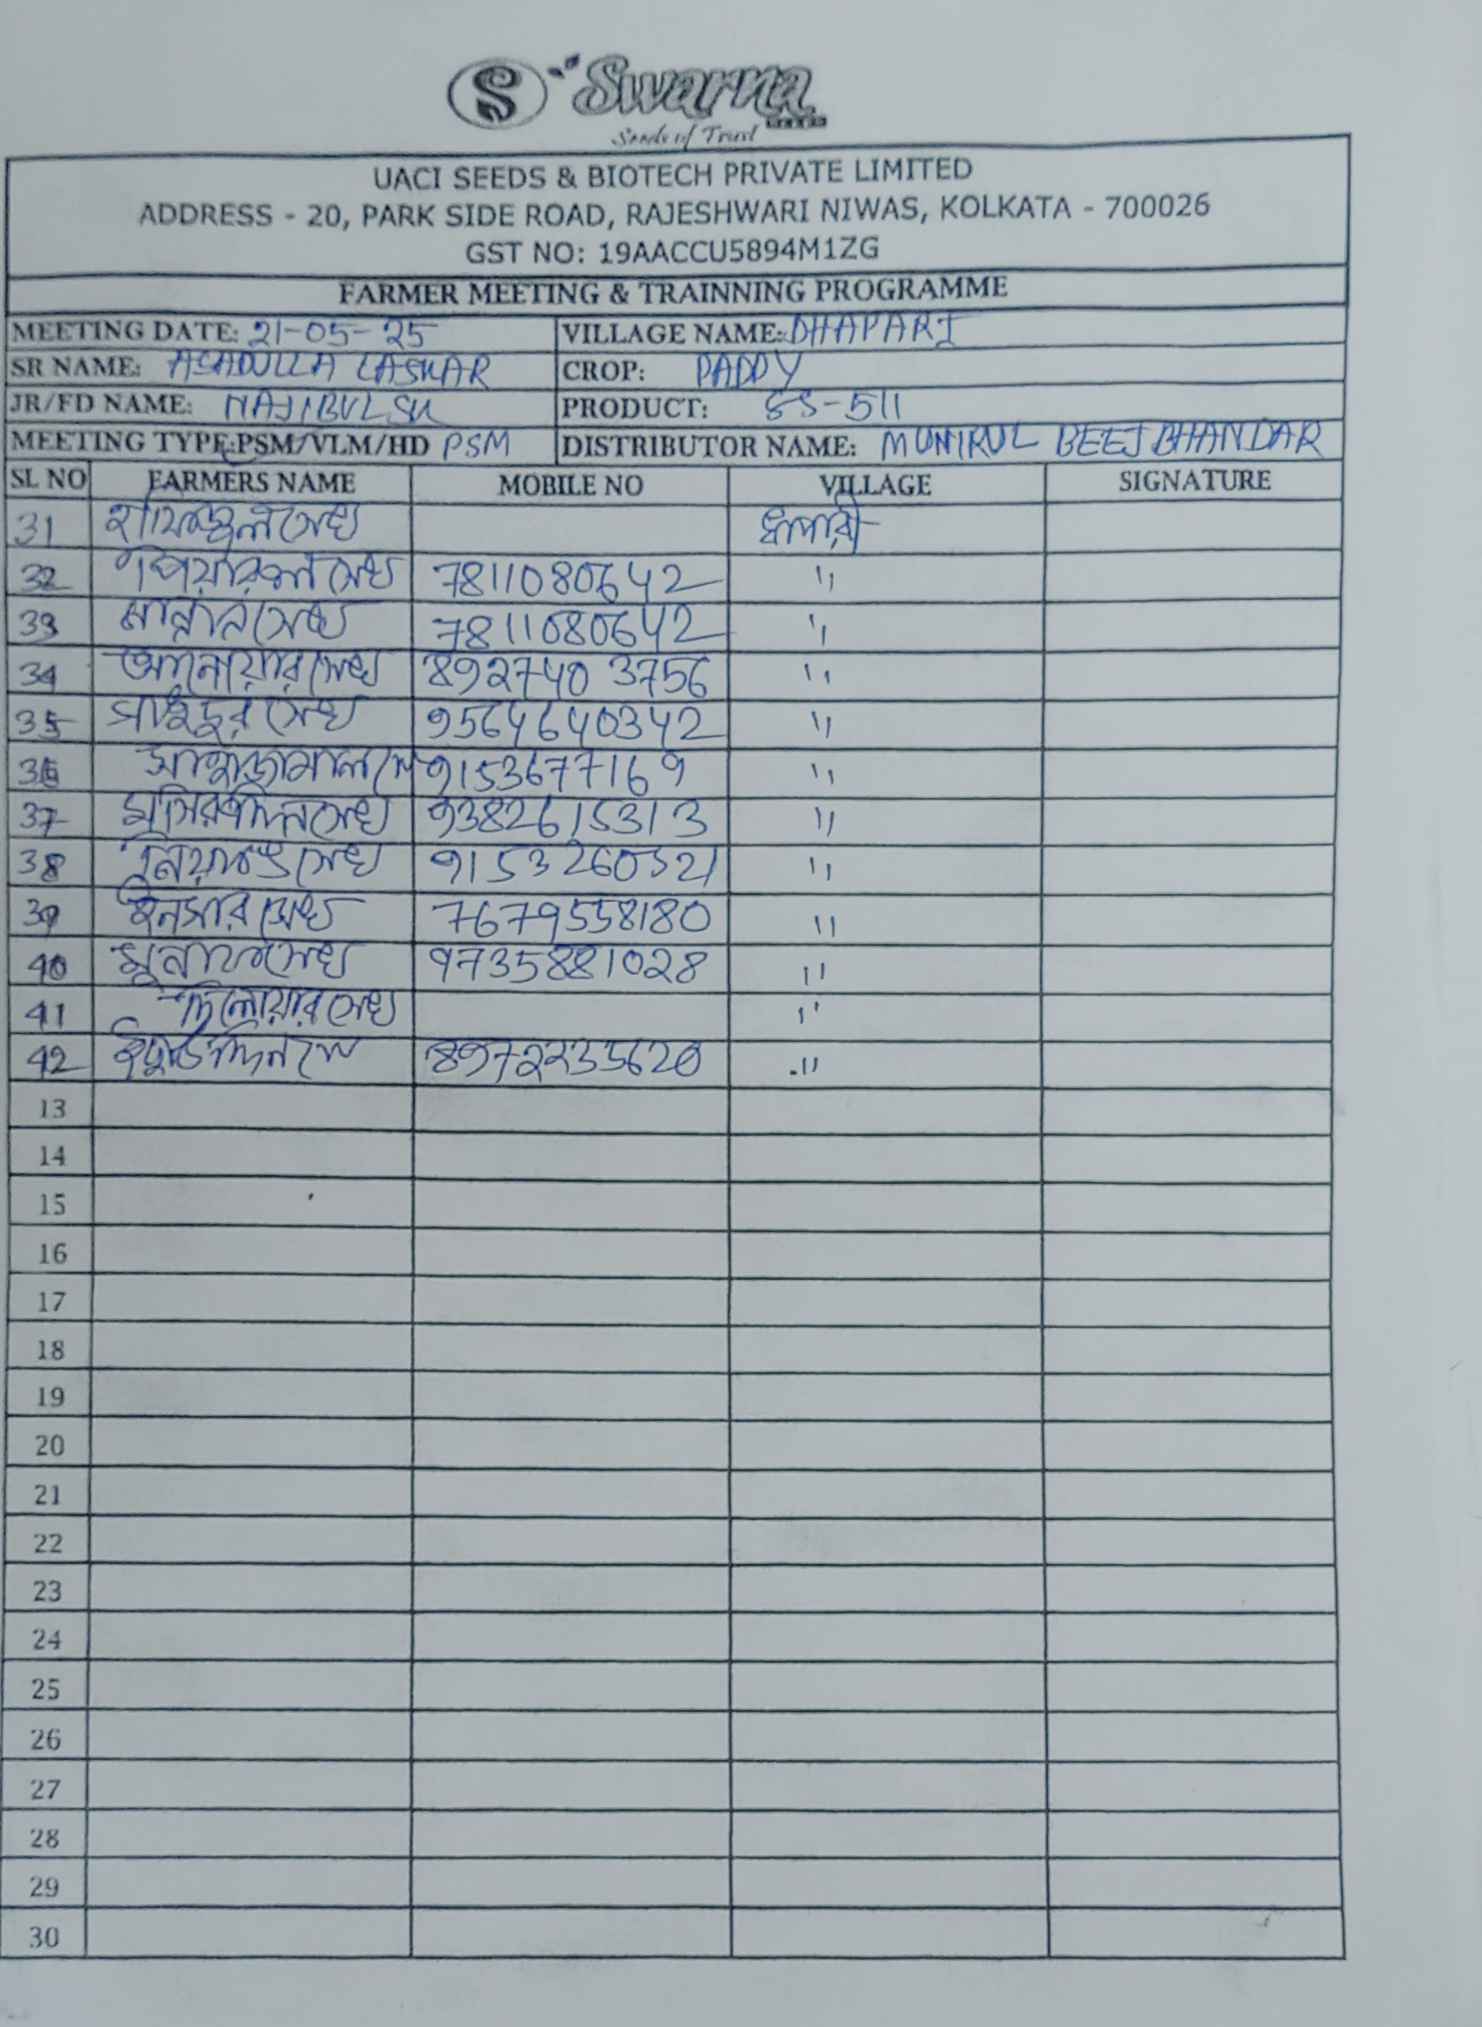 S Swarna
Seeds of Trust
UACI SEEDS & BIOTECH PRIVATE LIMITED
ADDRESS - 20, PARK SIDE ROAD, RAJESHWARI NIWAS, KOLKATA - 700026
GST NO: 19AACCU5894M1ZG
FARMER MEETING & TRAINNING PROGRAMME
MEETING DATE: 21-05-25 VILLAGE NAME: DHAPARI
SR NAME: ASADULLA LASKAR CROP: PADDY
JR/FD NAME: NAJIBUL SK PRODUCT: SS-511
MEETING TYPE:PSM/VLM/HD PSM DISTRIBUTOR NAME: MUNIRUL BEEJ BHANDAR
SL NO FARMERS NAME MOBILE NO VILLAGE SIGNATURE
31 সেখ
32 সেখ 7811080642 "
33 মান্নান সেখ 7811080642 "
34 আনোয়ার সেখ 8927403756 "
35 সেখ 9564640342 "
36 9153677169 "
37 সেখ 9382615313 "
38 সেখ 9153260321 "
39 ইনসার সেখ 7679558180 "
40 সেখ 9735881028 "
41 দিলোয়ার সেখ "
42 8972235620 "
13
14
15
16
17
18
19
20
21
22
23
24
25
26
27
28
29
30